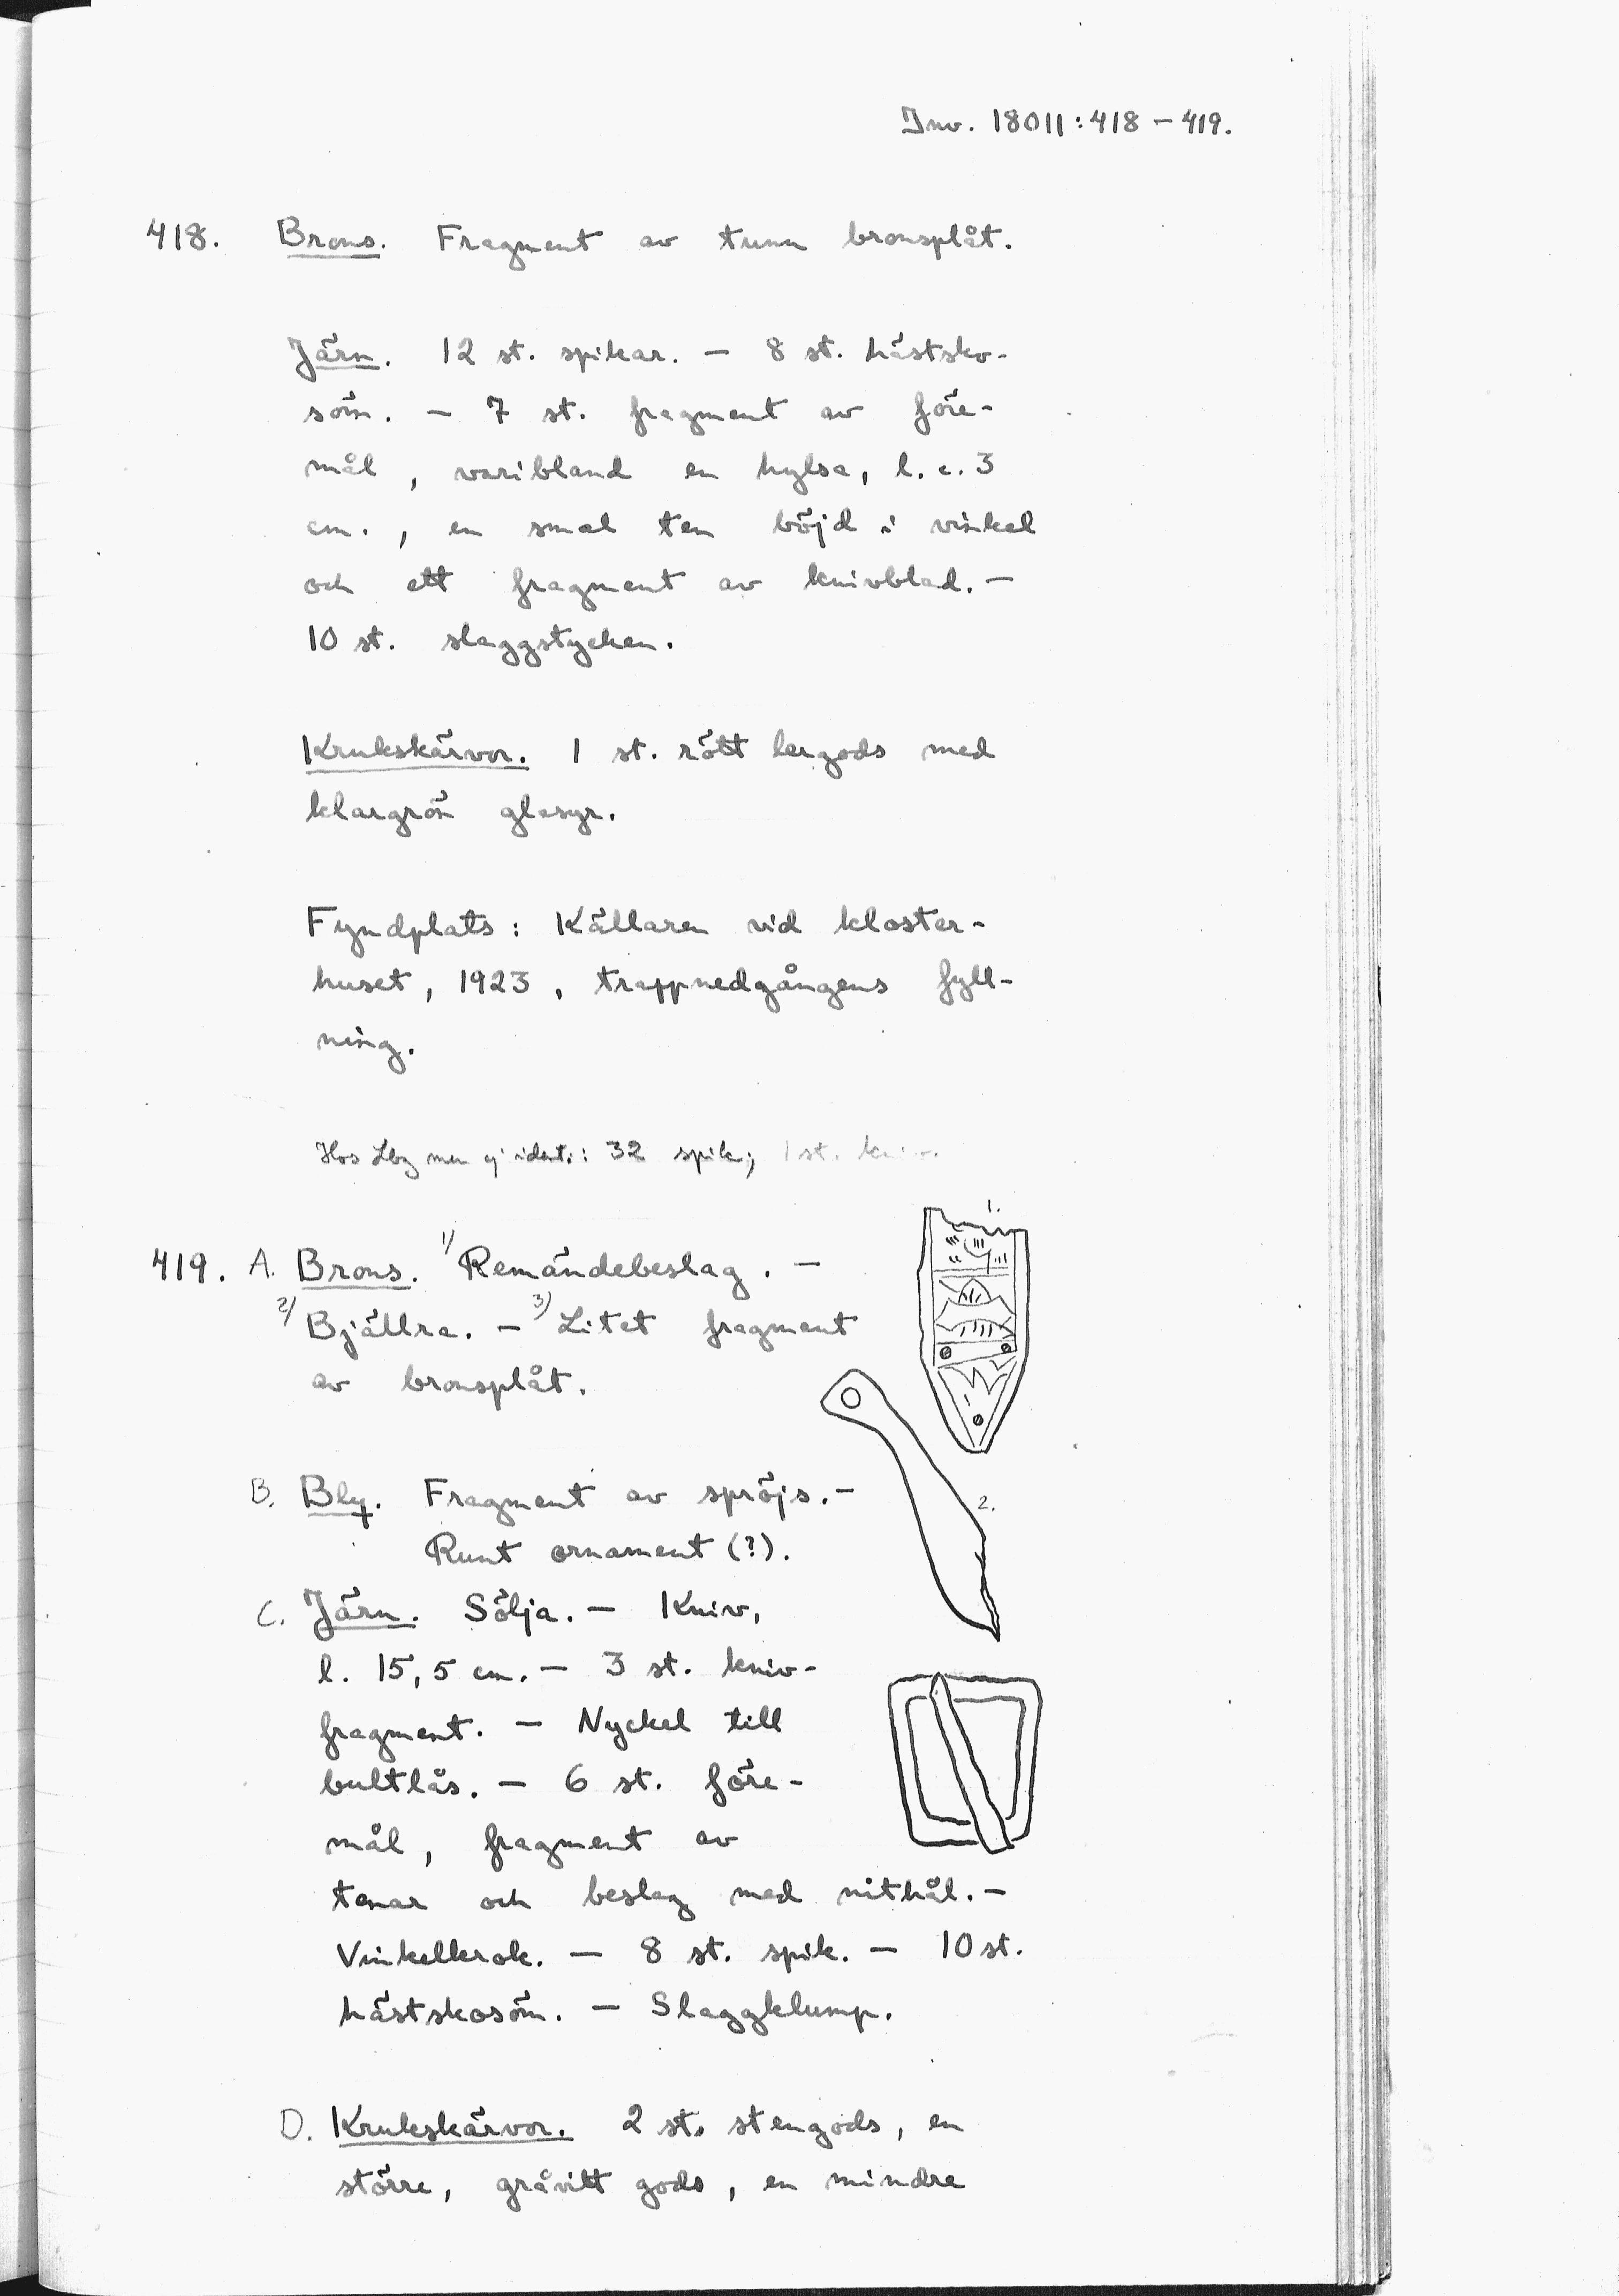 Inv. 18011:418 – 419.
418. Brons. Fragment av tunn bronsplåt.
Järn. 12 st. spikar. – 8 st. hästsko-
söm. – 7 st. fragment av före-
mål, varibland en hylsa, l. c. 3
cm., en smal ten böjd i vinkel
och ett fragment av knivblad. –
10 st. slaggstycken.
Krukskärvor. 1 st. rött lergods med
klargrön glasyr.
Fyndplats: Källaren vid kloster-
huset, 1923, trappnedgångens fyll-
ning.
Hos Lbg men ej ident.: 32 spik; 1 st. kniv.
1.
419. A. Brons. 1) Remändebeslag. –
2) Bjällra. – 3) Litet fragment
av bronsplåt.
B. Bly. Fragment av spröjs. –
2.
Runt ornament (?).
C. Järn. Sölja. – Kniv,
l. 15,5 cm. – 3 st. kniv-
fragment. – Nyckel till
bultlås. – 6 st. före-
mål, fragment av
tenar och beslag med nithål. –
Vinkelkrok. – 8 st. spik. – 10 st.
hästskosöm. – Slaggklump.
D. Krukskärvor. 2 st. stengods, en
större, gråvitt gods, en mindre